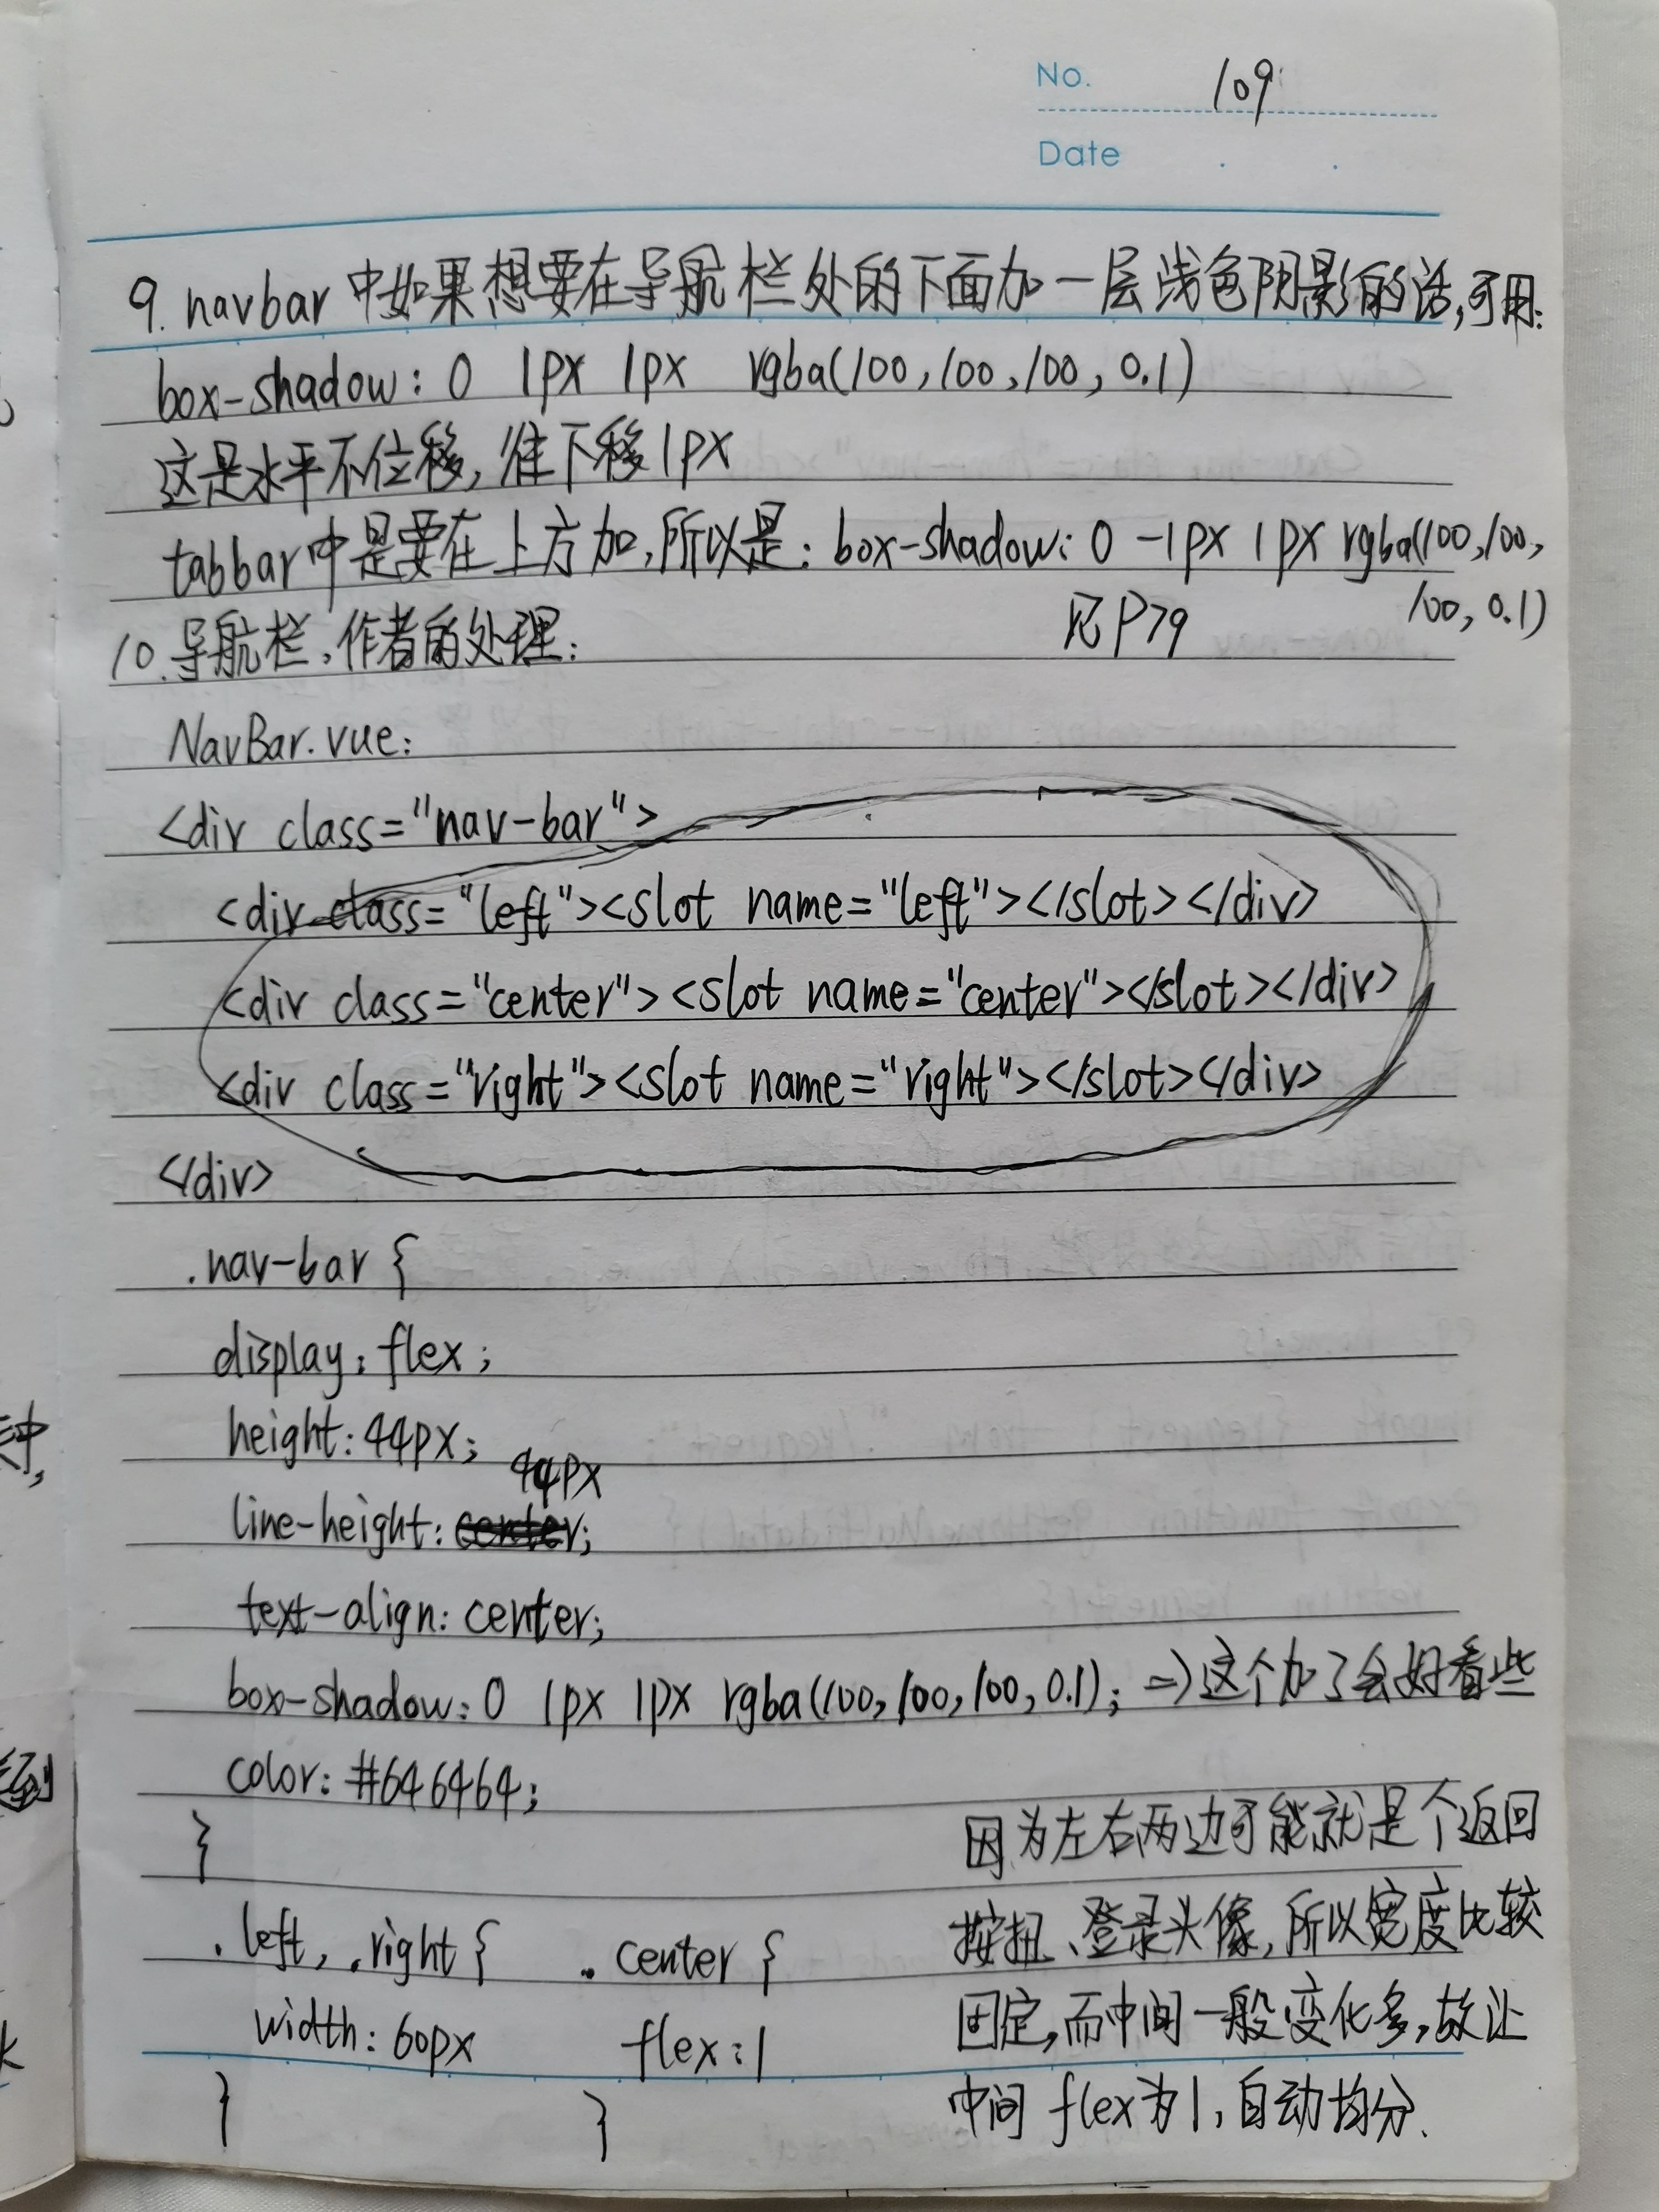 No. 109
Date
9. navbar 中如果想要在导航栏处的下面加一层浅色阴影的话,可用:
box-shadow: 0 1px 1px rgba(100,100,100,0.1)
这是水平不位移,往下移1px
tabbar中是要在上方加,所以是: box-shadow: 0 -1px 1px rgba(100,100,
100,0.1)
见P79
10.导航栏,作者的处理:
NavBar.vue:
<div class="nav-bar">
<div class="left"><slot name="left"></slot></div>
<div class="center"><slot name="center"></slot></div>
<div class="right"><slot name="right"></slot></div>
</div>
.nav-bar {
display: flex;
height: 44px;
44px
line-height: center;
text-align: center;
box-shadow: 0 1px 1px rgba(100,100,100,0.1); => 这个加了会好看些
color: #646464;
}
.left, .right {
width: 60px
}
.center {
flex: 1
}
因为左右两边可能就是个返回
按扭、登录头像,所以宽度比较
固定,而中间一般变化多,故让
中间 flex为1,自动均分.